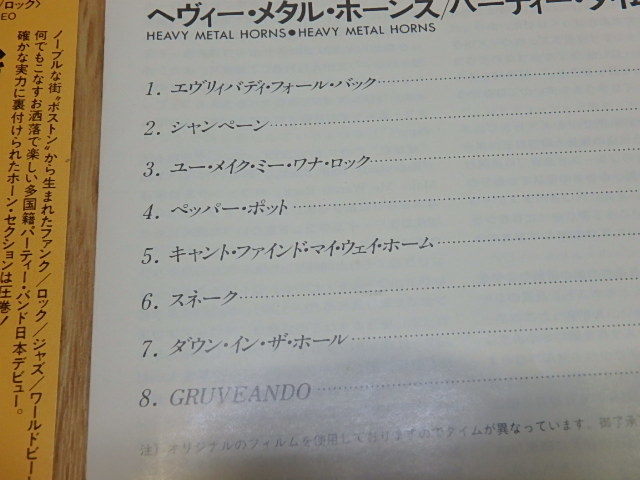 ロック〉
EO
ノーブルな街“ボストン”から生まれたファンク／ロック／ジャズ／ワールドビー
何でもこなすお洒落で楽しい多国籍パーティー・バンド日本デビュー。
確かな実力に裏付けられたホーン・セクションは圧巻！
ヘヴィー・メタル・ホーンズ/パーティー・タイム
HEAVY METAL HORNS●HEAVY METAL HORNS
1. エヴリィバディ・フォール・バック
2. シャンペーン
3. ユー・メイク・ミー・ワナ・ロック
4. ペッパー・ポット
5. キャント・ファインド・マイ・ウェイ・ホーム
6. スネーク
7. ダウン・イン・ザ・ホール
8. GRUVEANDO
注）オリジナルのフィルムを使用しておりますのでタイムが異なっています。御了承